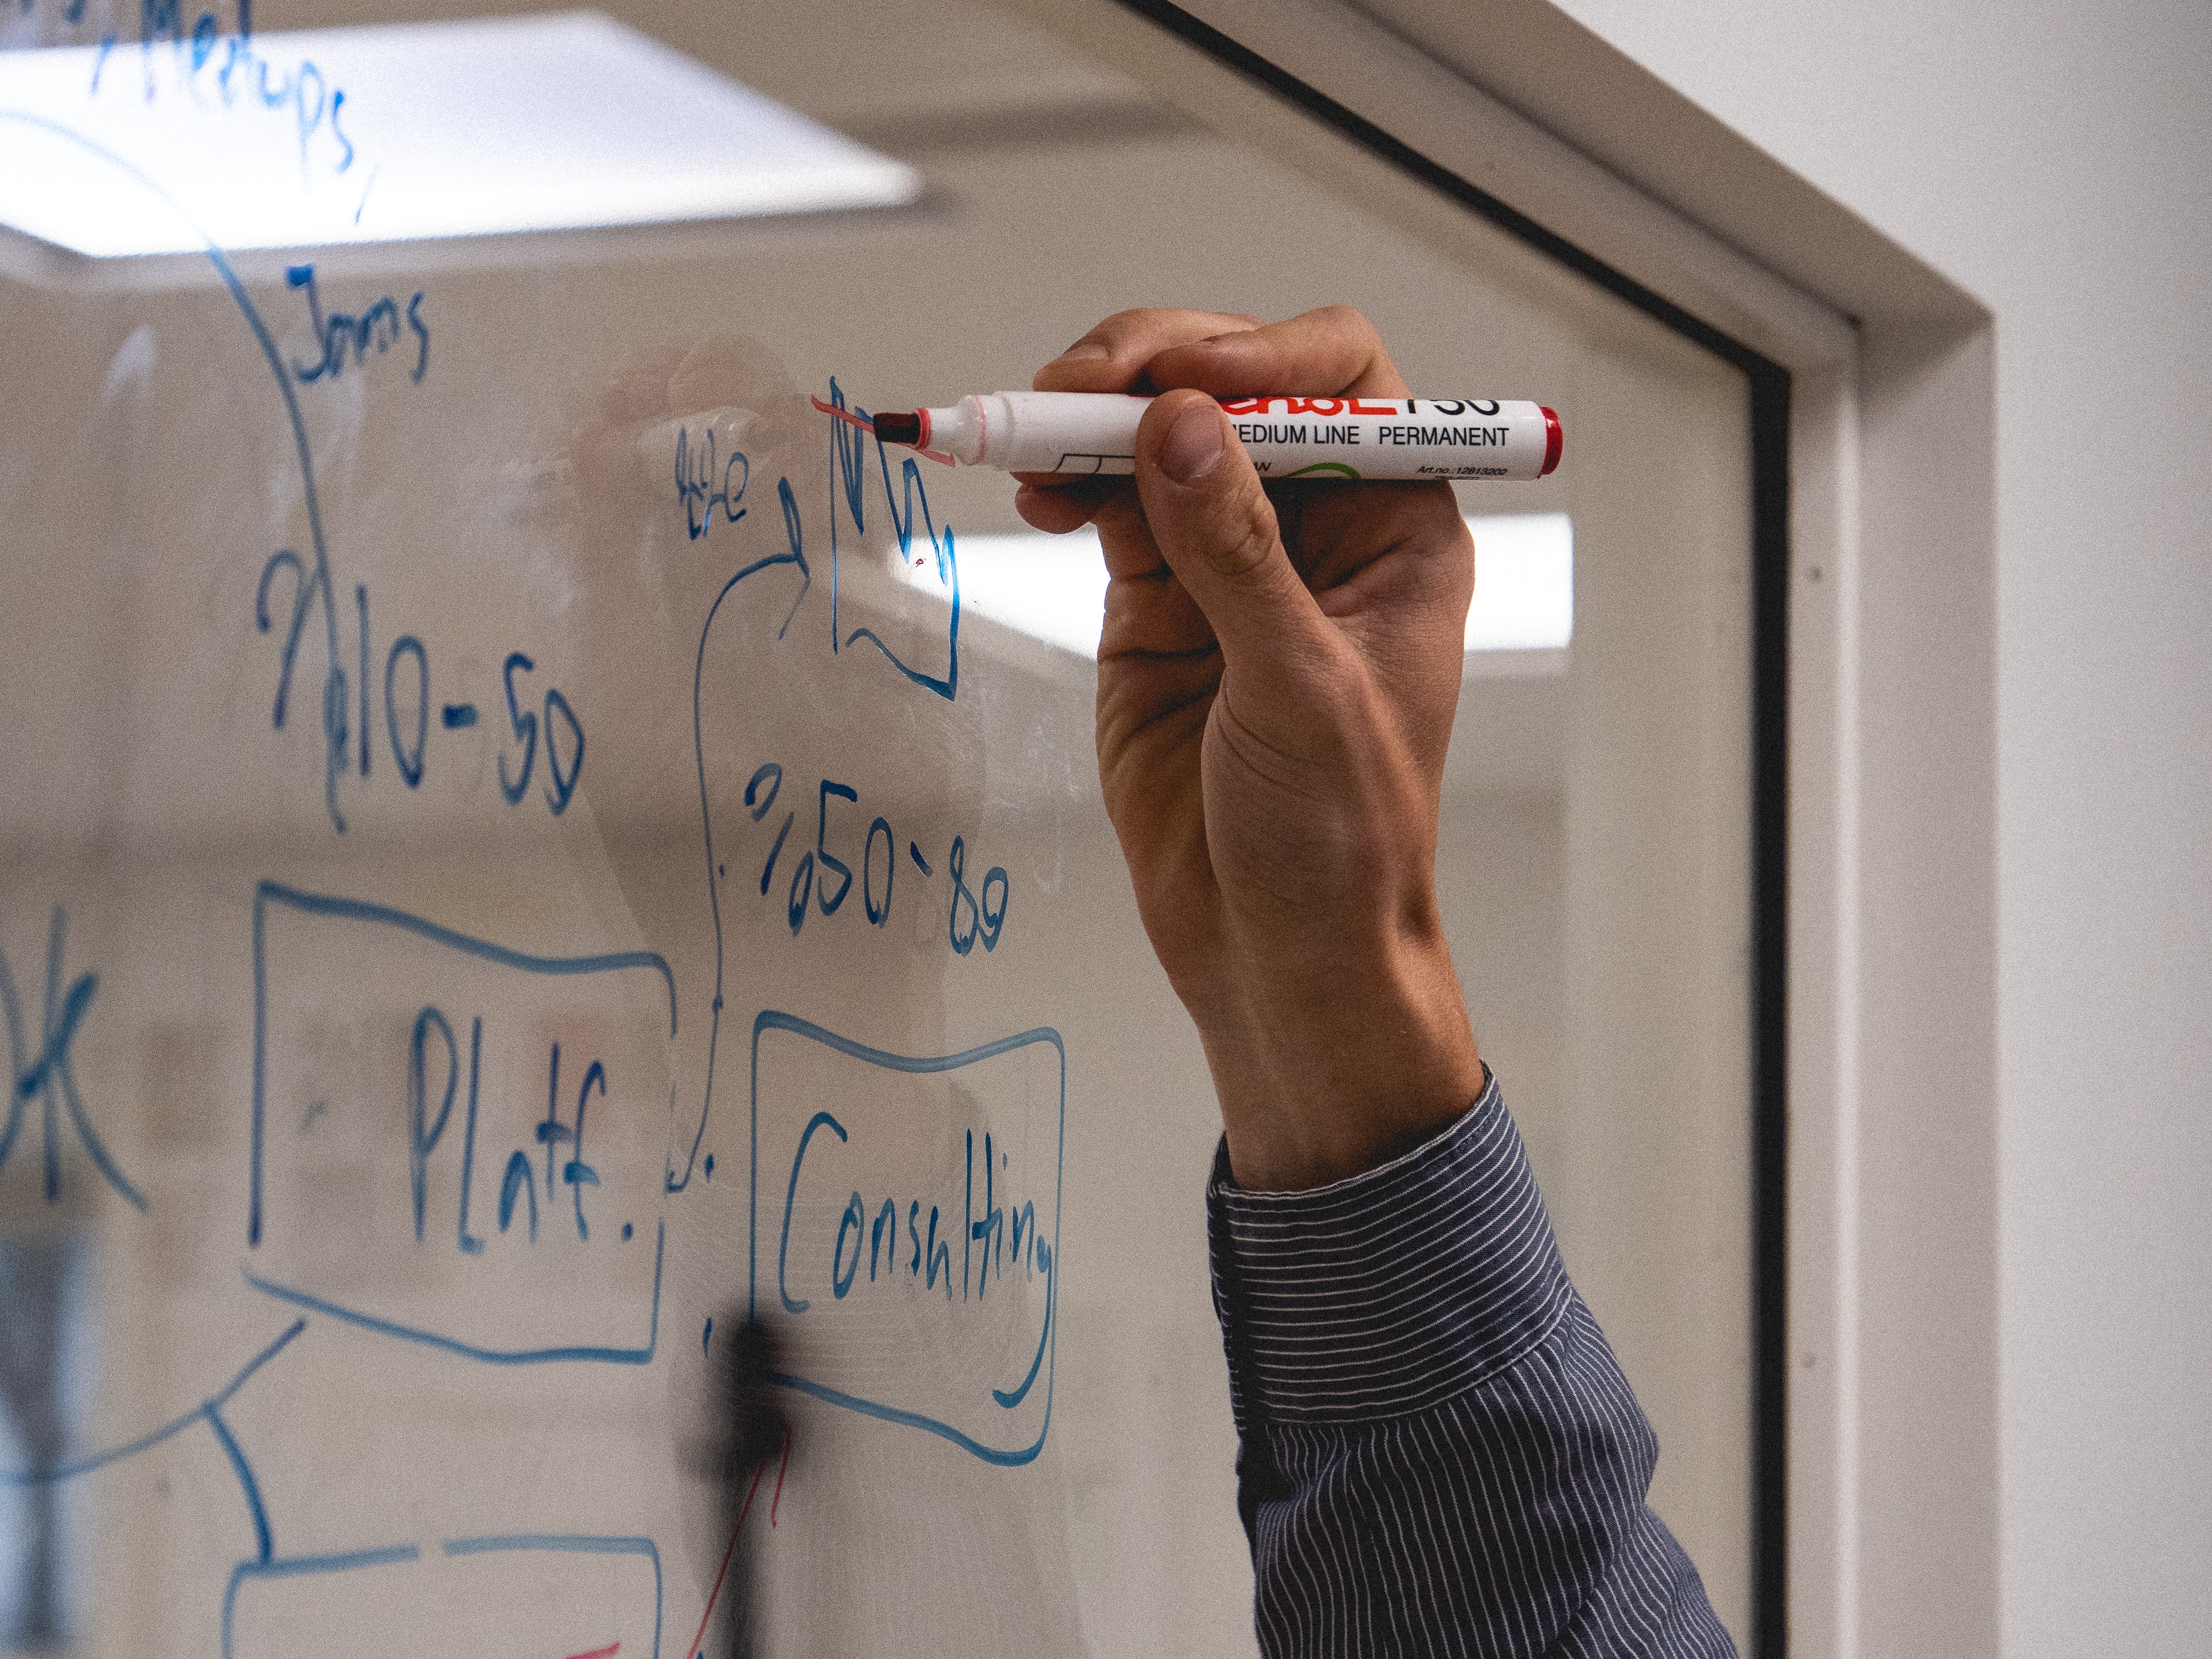 Meetups,
Jams
% 10-50
% 50-80
Platf.
Consulting
MEDIUM LINE PERMANENT
Art.no.:12813202